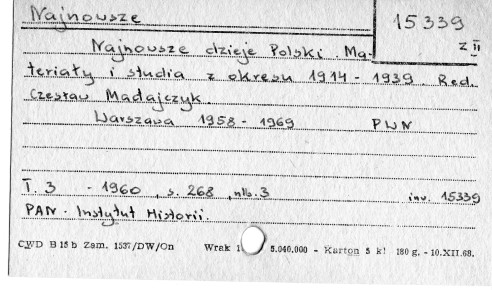 Najnowsze
15339
z II
Najnowsze dzieje Polski. Ma-
teriały i studia z okresu 1914 - 1939. Red.
Czesław Madajczyk.
Warszawa 1958 - 1969 PWN
T. 3 - 1960, s. 268, nlb. 3 inv. 15339
PAN. Instytut Historii.
CWD B 15 b Zam. 1537/DW/On Wrak 1 5.040.000 - Karton 5 kl 180 g. - 10.XII.68.